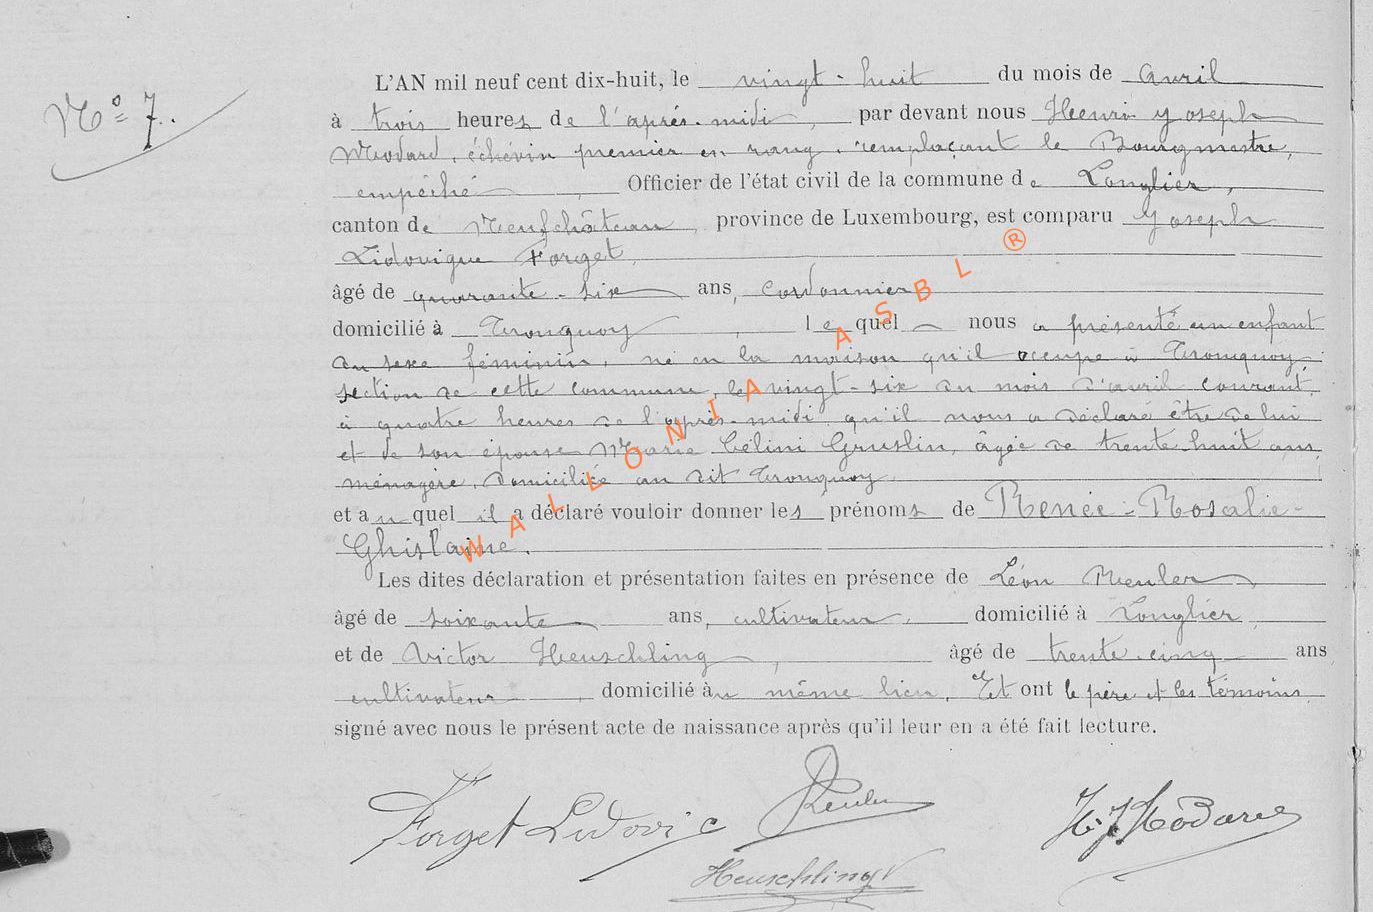 N° 7.
L'AN mil neuf cent dix-huit, le vingt-huit du mois de avril
à trois heures de l'après-midi, par devant nous Henri Joseph
Modard, échevin premier en rang, remplaçant le Bourgmestre,
empêché, Officier de l'état civil de la commune de Longlier,
canton de Neufchâteau, province de Luxembourg, est comparu Joseph
Lidovique Forget,
âgé de quarante-six ans, cordonnier
domicilié à Tronquoy, lequel nous a présenté un enfant
du sexe féminin, né en la maison qu'il occupe à Tronquoy,
section de cette commune, le vingt-six du mois d'avril courant,
à quatre heures de l'après-midi qu'il nous a déclaré être de lui
et de son épouse Marie Célini Gruslin, âgée de trente-huit ans,
ménagère, domiciliée au dit Tronquoy.
et auquel il a déclaré vouloir donner les prénoms de Renée-Rosalie-
Ghislaine.
Les dites déclaration et présentation faites en présence de Léon Reuler,
âgé de soixante ans, cultivateur, domicilié à Longlier,
et de Victor Heuschling, âgé de trente-cinq ans
cultivateur, domicilié au même lieu. Et ont le père et les témoins
signé avec nous le présent acte de naissance après qu'il leur en a été fait lecture.
Forget Ludovic
Reuler
H. J. Modard
Heuschling V
WALLONIA ASBL ®